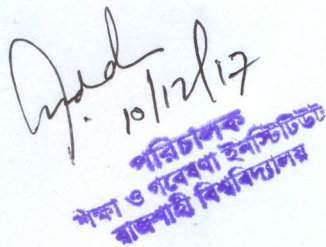 10/12/17
পরিচালক
শিক্ষা ও গবেষণা ইনস্টিটিউট
রাজশাহী বিশ্ববিদ্যালয়